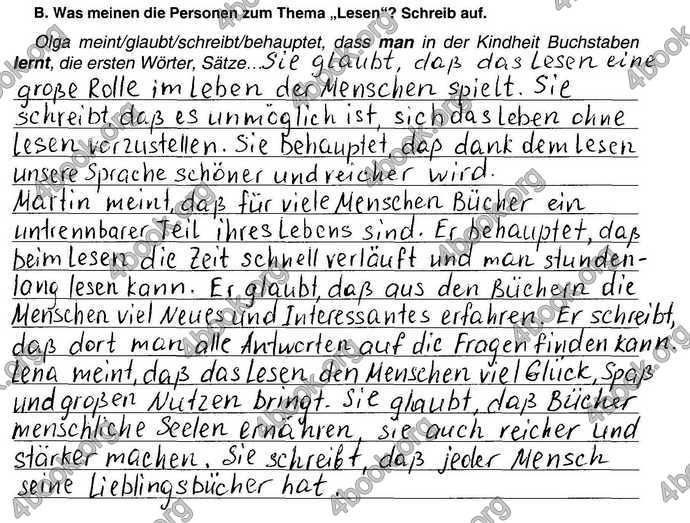 B. Was meinen die Personen zum Thema „Lesen“? Schreib auf.
Olga meint/glaubt/schreibt/behauptet, dass man in der Kindheit Buchstaben
lernt, die ersten Wörter, Sätze... Sie glaubt, daß das Lesen eine
große Rolle im Leben der Menschen spielt. Sie
schreibt, daß es unmöglich ist, sich das Leben ohne
Lesen vorzustellen. Sie behauptet, daß dank dem Lesen
unsere Sprache schöner und reicher wird.
Martin meint, daß für viele Menschen Bücher ein
untrennbarer Teil ihres Lebens sind. Er behauptet, daß
beim Lesen die Zeit schnell verläuft und man stunden-
lang lesen kann. Er glaubt, daß aus den Büchern die
Menschen viel Neues und Interessantes erfahren. Er schreibt,
daß dort man alle Antworten auf die Fragen finden kann.
Lena meint, daß das Lesen den Menschen viel Glück, Spaß
und großen Nutzen bringt. Sie glaubt, daß Bücher
menschliche Seelen ernähren, sie auch reicher und
stärker machen. Sie schreibt, daß jeder Mensch
seine Lieblingsbücher hat.
4book.org